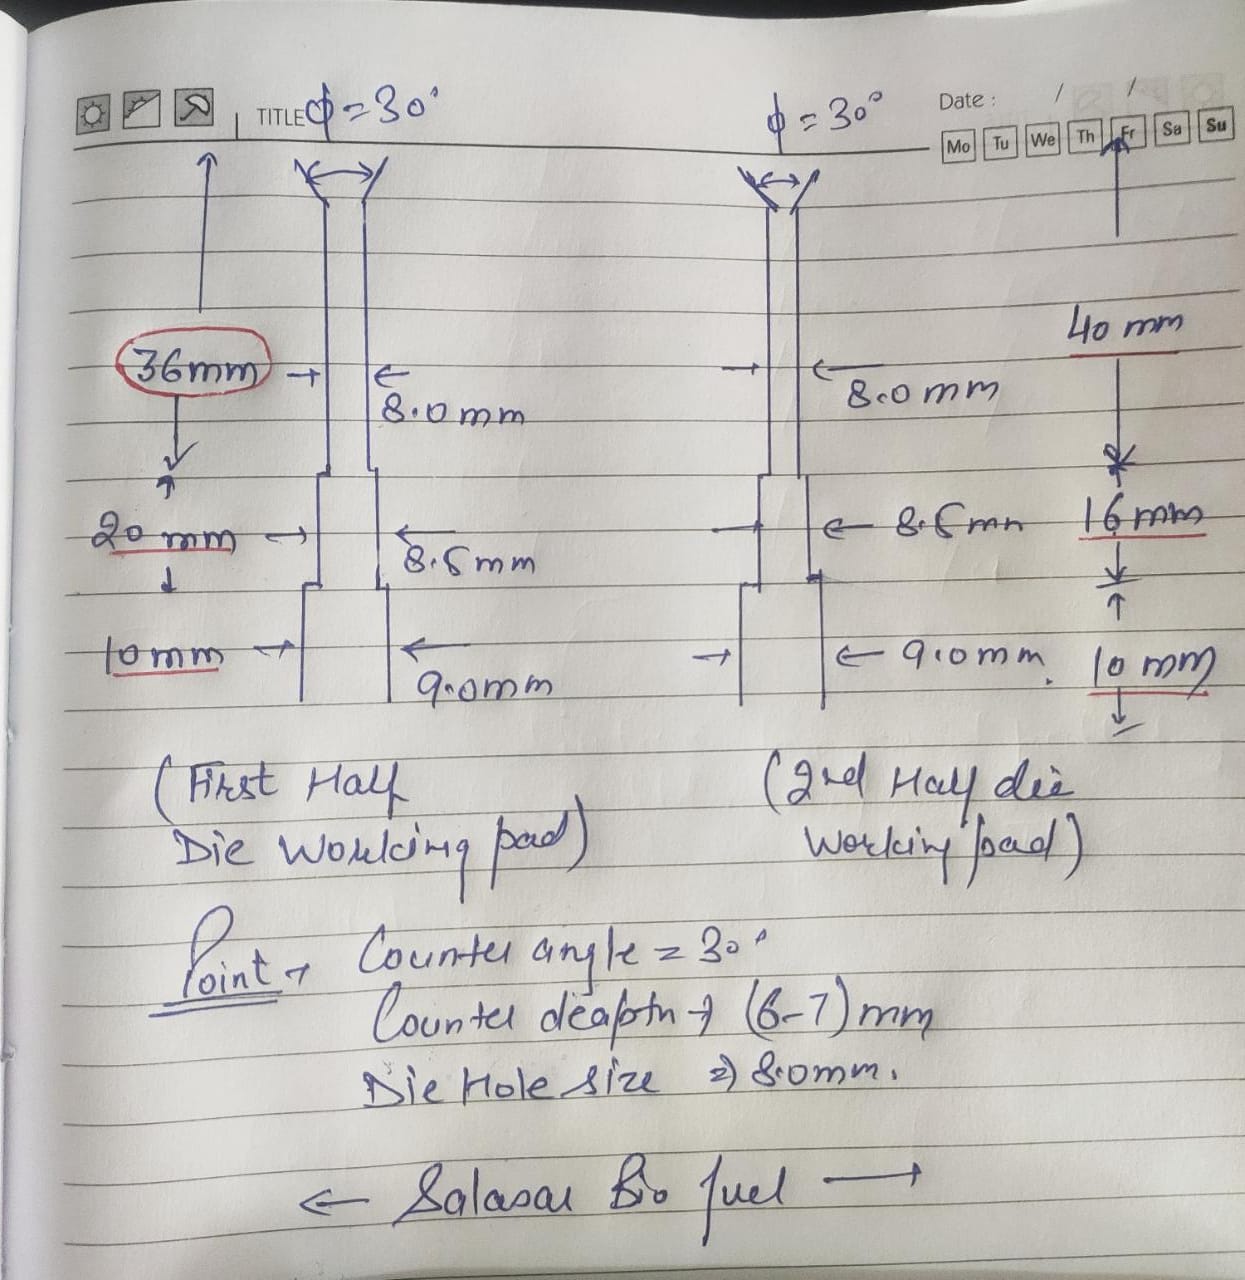 TITLE ϕ = 30°
ϕ = 30°
Date : / /
Mo Tu We Th Fr Sa Su
40 mm
36mm
8.0mm
8.0 mm
20 mm
8.5mm
8.5mm
16mm
10mm
9.0mm
9.0mm.
10 mm
(First Half
Die Working pad)
(2nd Half die
Working pad)
Point → Counter angle = 30°
Counter deapth → (6-7)mm
Die Hole size ⇒ 8.0mm.
← Salasar Bio fuel →